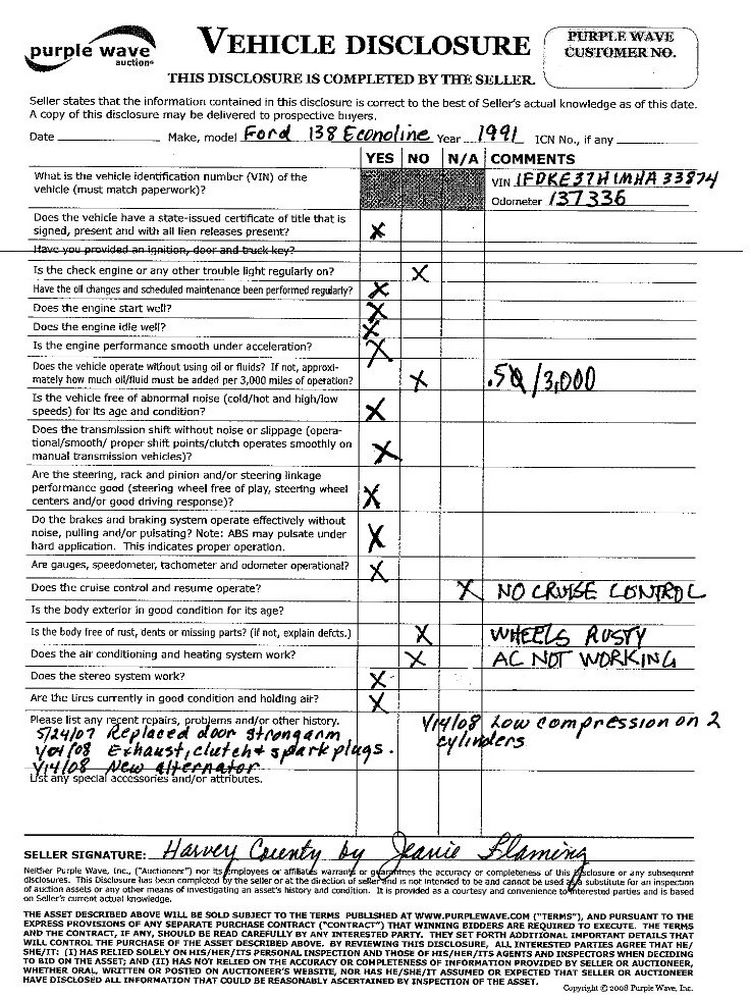 purple wave
auction®
VEHICLE DISCLOSURE
PURPLE WAVE
CUSTOMER NO.
THIS DISCLOSURE IS COMPLETED BY THE SELLER.
Seller states that the information contained in this disclosure is correct to the best of Seller's actual knowledge as of this date.
A copy of this disclosure may be delivered to prospective buyers.
Date Make, model Ford 138 Econoline Year 1991 ICN No., if any
YES NO N/A COMMENTS
What is the vehicle identification number (VIN) of the
vehicle (must match paperwork)?
VIN 1FDKE37H1MHA33874
Odometer 137336
Does the vehicle have a state-issued certificate of title that is
signed, present and with all lien releases present? X
Have you provided an ignition, door and truck key?
Is the check engine or any other trouble light regularly on? X
Have the oil changes and scheduled maintenance been performed regularly? X
Does the engine start well? X
Does the engine idle well? X
Is the engine performance smooth under acceleration? X
Does the vehicle operate without using oil or fluids? If not, approxi-
mately how much oil/fluid must be added per 3,000 miles of operation? X .5Q/3,000
Is the vehicle free of abnormal noise (cold/hot and high/low
speeds) for its age and condition? X
Does the transmission shift without noise or slippage (opera-
tional/smooth/ proper shift points/clutch operates smoothly on
manual transmission vehicles)? X
Are the steering, rack and pinion and/or steering linkage
performance good (steering wheel free of play, steering wheel
centers and/or good driving response)? X
Do the brakes and braking system operate effectively without
noise, pulling and/or pulsating? Note: ABS may pulsate under
hard application. This indicates proper operation. X
Are gauges, speedometer, tachometer and odometer operational? X
Does the cruise control and resume operate? X NO CRUISE CONTROL
Is the body exterior in good condition for its age?
Is the body free of rust, dents or missing parts? (if not, explain defcts.) X WHEELS RUSTY
Does the air conditioning and heating system work? X AC NOT WORKING
Does the stereo system work? X
Are the tires currently in good condition and holding air? X
Please list any recent repairs, problems and/or other history.
5/24/07 Replaced door strongarm
1/04/08 Exhaust, clutch & spark plugs.
1/14/08 New alternator
1/14/08 Low compression on 2
cylinders
List any special accessories and/or attributes.
SELLER SIGNATURE: Harvey County by Jeanie Flaming
Neither Purple Wave, Inc., ("Auctioneer") nor its employees or affiliates warrants or guarantees the accuracy or completeness of this disclosure or any subsequent
disclosures. This Disclosure has been completed by the seller or at the direction of seller and is not intended to be and cannot be used as a substitute for an inspection
of auction assets or any other means of investigating an asset's history and condition. It is provided as a courtesy and convenience to interested parties and is based
on Seller's current actual knowledge.
THE ASSET DESCRIBED ABOVE WILL BE SOLD SUBJECT TO THE TERMS PUBLISHED AT WWW.PURPLEWAVE.COM ("TERMS"), AND PURSUANT TO THE
EXPRESS PROVISIONS OF ANY SEPARATE PURCHASE CONTRACT ("CONTRACT") THAT WINNING BIDDERS ARE REQUIRED TO EXECUTE. THE TERMS
AND THE CONTRACT, IF ANY, SHOULD BE READ CAREFULLY BY ANY INTERESTED PARTY. THEY SET FORTH ADDITIONAL IMPORTANT DETAILS THAT
WILL CONTROL THE PURCHASE OF THE ASSET DESCRIBED ABOVE. BY REVIEWING THIS DISCLOSURE, ALL INTERESTED PARTIES AGREE THAT HE/
SHE/IT: (I) HAS RELIED SOLELY ON HIS/HER/ITS PERSONAL INSPECTION AND THOSE OF HIS/HER/ITS AGENTS AND INSPECTORS WHEN DECIDING
TO BID ON THE ASSET; AND (II) HAS NOT RELIED ON THE ACCURACY OR COMPLETENESS OF INFORMATION PROVIDED BY SELLER OR AUCTIONEER,
WHETHER ORAL, WRITTEN OR POSTED ON AUCTIONEER'S WEBSITE, NOR HAS HE/SHE/IT ASSUMED OR EXPECTED THAT SELLER OR AUCTIONEER
HAVE DISCLOSED ALL INFORMATION THAT COULD BE REASONABLY ASCERTAINED BY INSPECTION OF THE ASSET.
Copyright © 2008 Purple Wave, Inc.